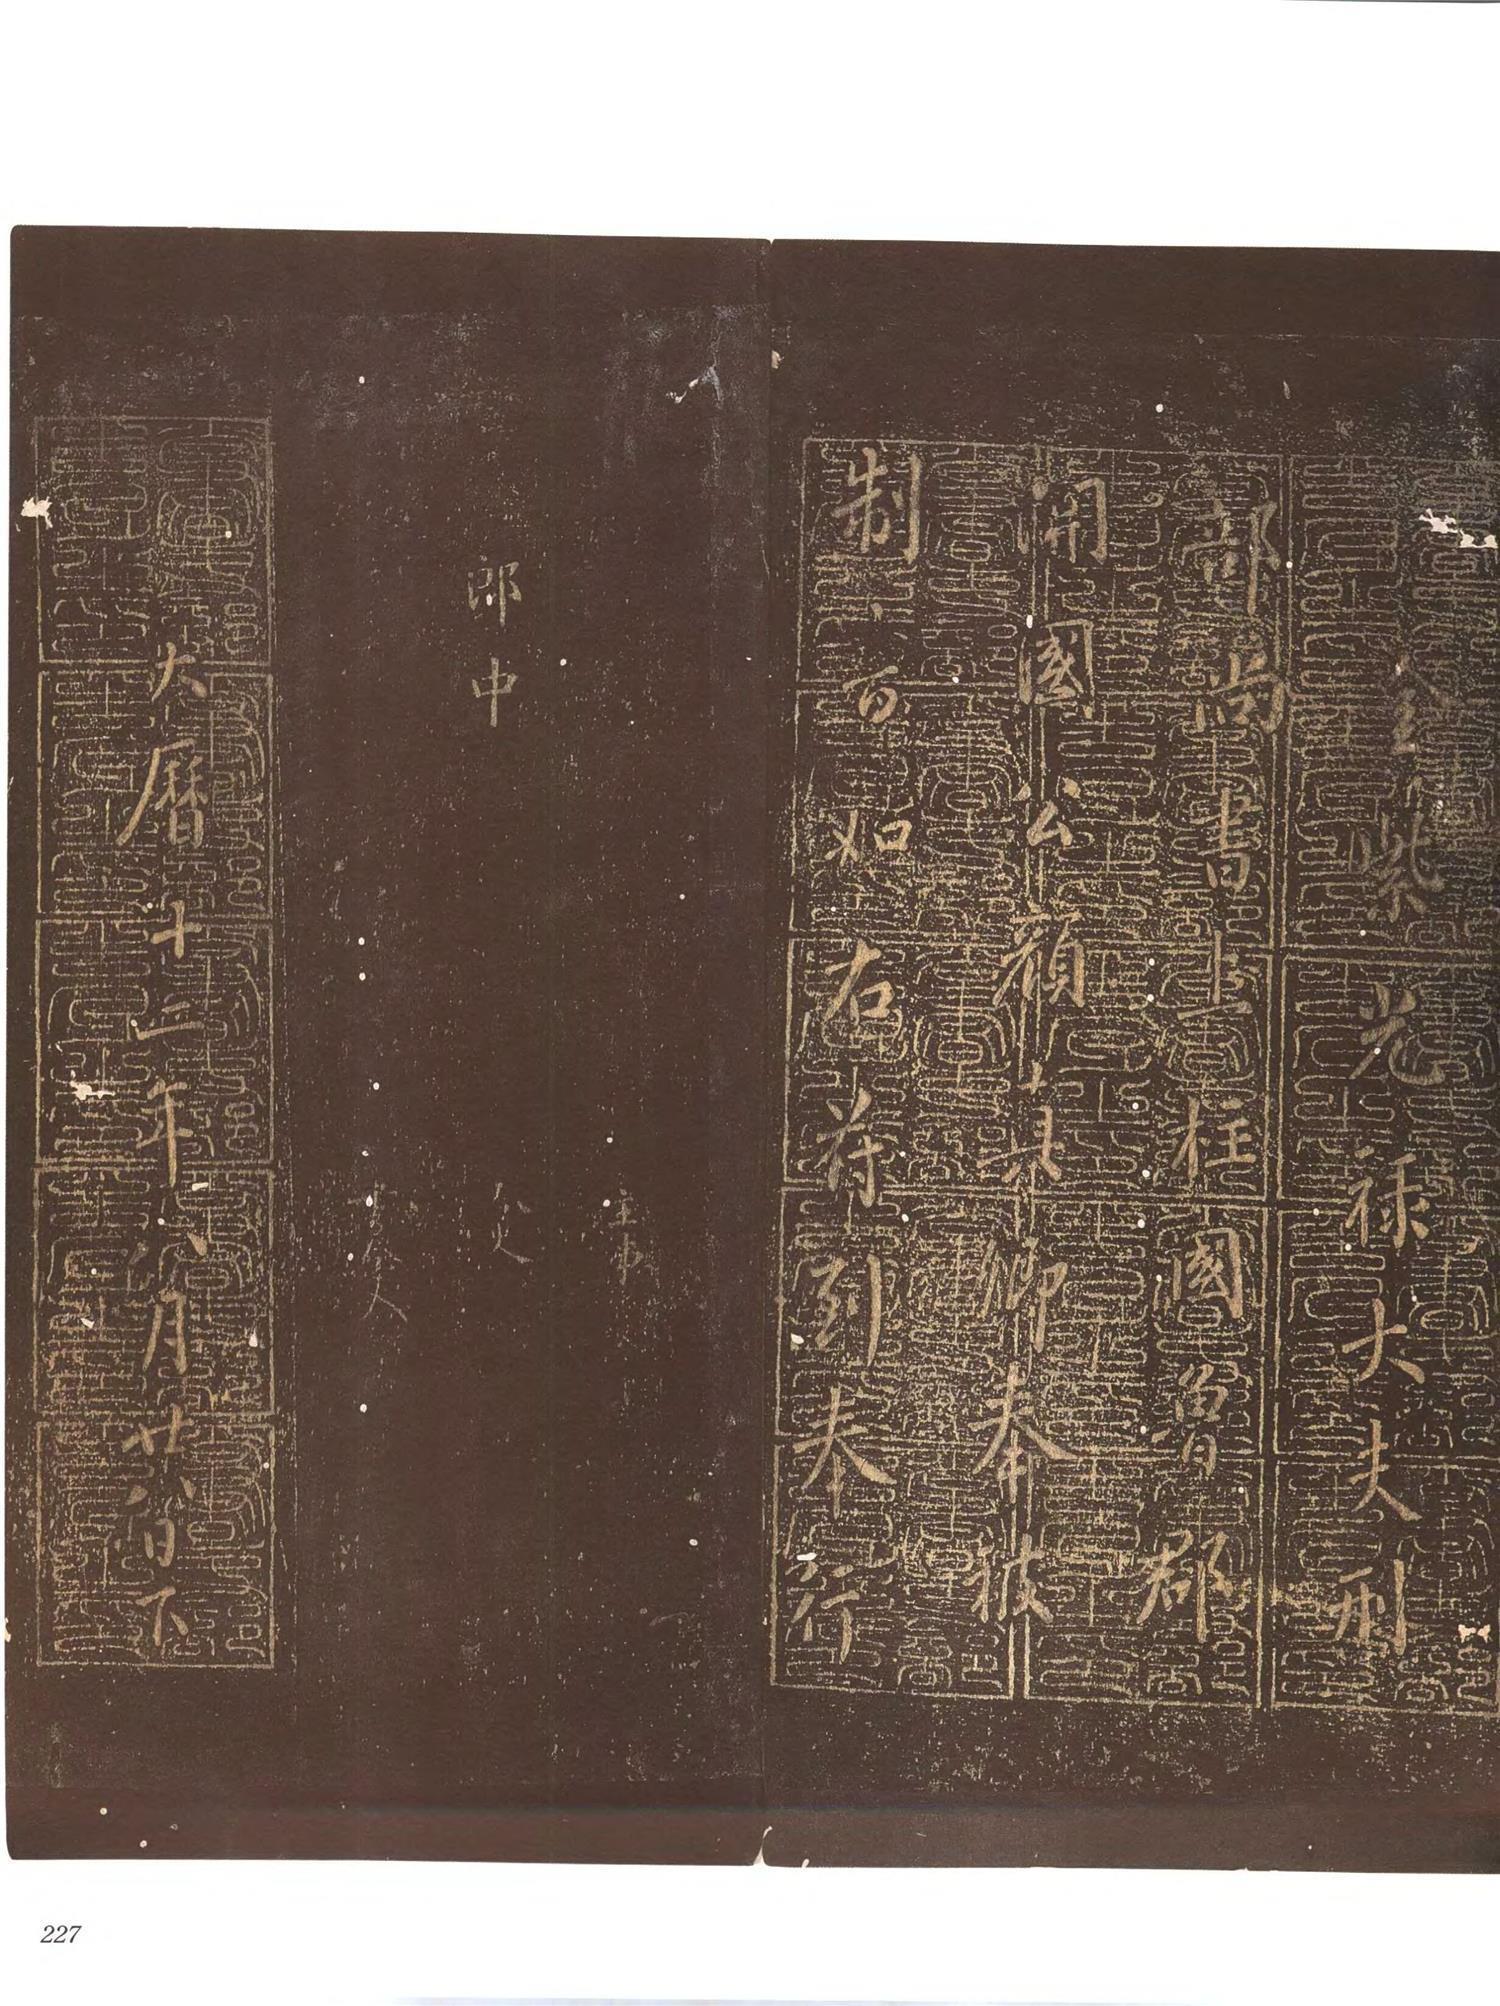 金紫光祿大夫刑
部尚書上柱國魯郡
開國公顔真卿奉被
制書如右苻到奉行
主事
郎中 令史
書令史
大曆十二年八月廿八日下
227